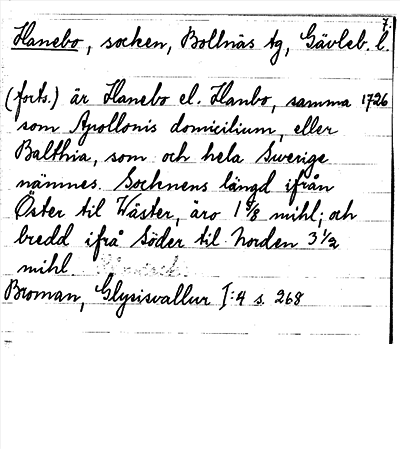 7.
Hanebo, socken, Bollnäs tg, Gävleb. l.
(forts.) är Hanebo el. Hanbo, samma 1726
som Apollonis domicilium, eller
Balthia, som och hela Swerige
nämnes. Socknens längd ifrån
Öster til Wäster, äro 1 5/8 mihl; och
bredd ifrå Söder til Norden 3 1/2
mihl
Broman, Glysisvallur I:4 s. 268